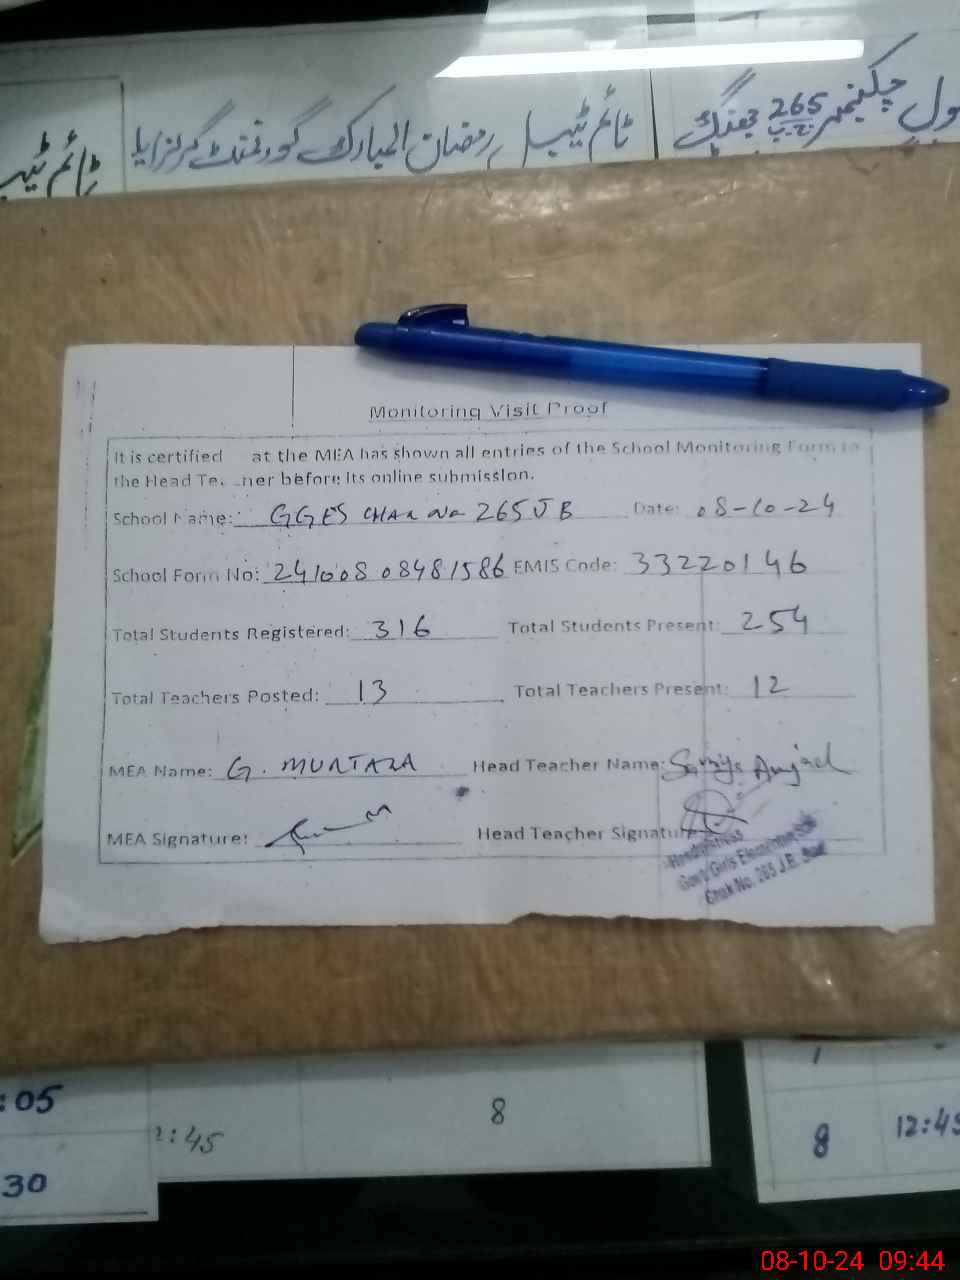 ٹائم ٹیبل رمضان المبارک گورنمنٹ گرلز ایلیمنٹری سکول چک نمبر 265 ج ب جھنگ
ٹائم ٹیبل
Monitoring Visit Proof
It is certified at the MEA has shown all entries of the School Monitoring Form to
the Head Te ner before its online submission.
School Name: GGES CHAK No 265 JB Date: 08-10-24
School Form No: 241008 08481586 EMIS Code: 33220146
Total Students Registered: 316 Total Students Present: 254
Total Teachers Posted: 13 Total Teachers Present: 12
MEA Name: G. MURTAZA Head Teacher Name: Amjad
MEA Signature: Head Teacher Signature
Headmistress
Govt Girls Elementary
Chak No. 265 J.B.
:05
30
2:45
8
8
12:45
08-10-24 09:44